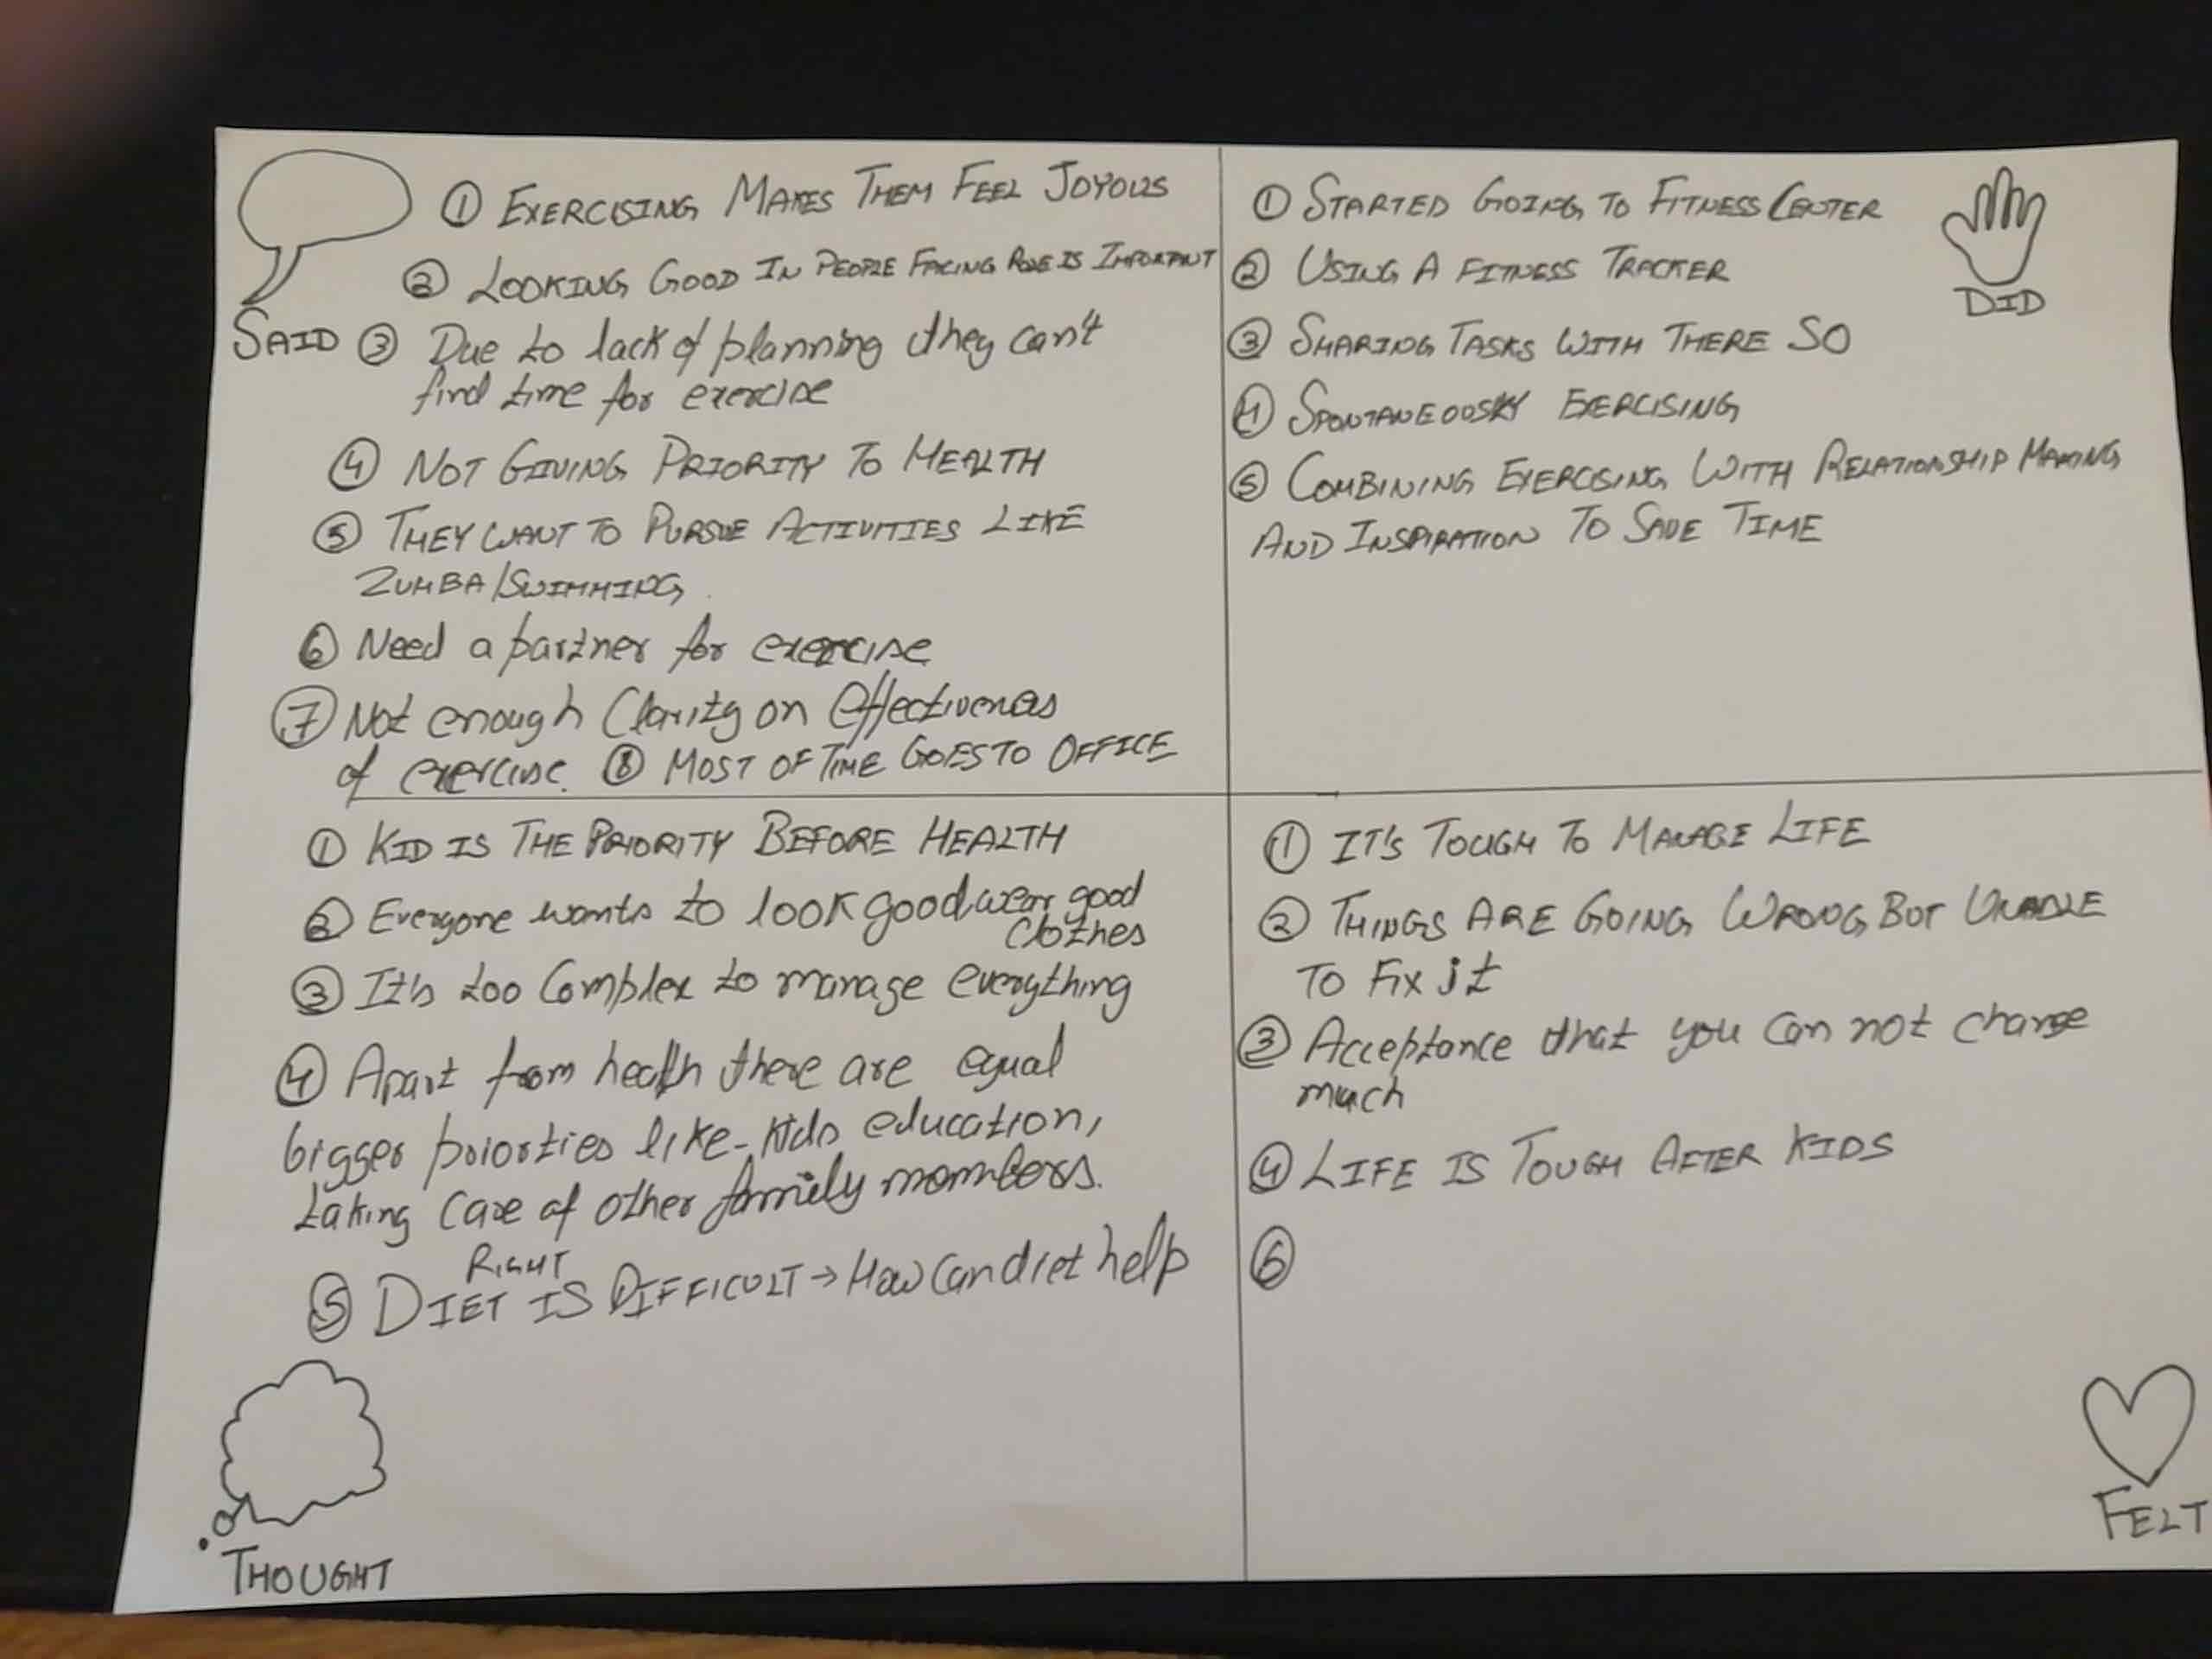 ① EXERCISING MAKES THEM FEEL JOYOUS
② LOOKING GOOD IN PEOPLE FACING ROLE IS IMPORTANT
SAID
③ Due to lack of planning they can't
find time for exercise
④ NOT GIVING PRIORITY TO HEALTH
⑤ THEY WANT TO PURSUE ACTIVITIES LIKE
ZUMBA/SWIMMING
⑥ Need a partner for exercise
⑦ Not enough Clarity on effectiveness
of exercise. ⑧ MOST OF TIME GOES TO OFFICE
① STARTED GOING TO FITNESS CENTER
② USING A FITNESS TRACKER
DID
③ SHARING TASKS WITH THERE SO
④ SPONTANEOUSLY EXERCISING
⑤ COMBINING EXERCISING WITH RELATIONSHIP MAKING
AND INSPIRATION TO SAVE TIME
① KID IS THE PRIORITY BEFORE HEALTH
② Everyone wants to look good wear good
clothes
③ It's too Complex to manage everything
④ Apart from health there are equal
bigger priorties like - kids education,
taking care of other family members.
RIGHT
⑤ DIET IS DIFFICULT → How can diet help
THOUGHT
① IT'S TOUGH TO MANAGE LIFE
② THINGS ARE GOING WRONG BUT UNABLE
TO FIX it
③ Acceptance that you can not change
much
④ LIFE IS TOUGH AFTER KIDS
⑥
FELT